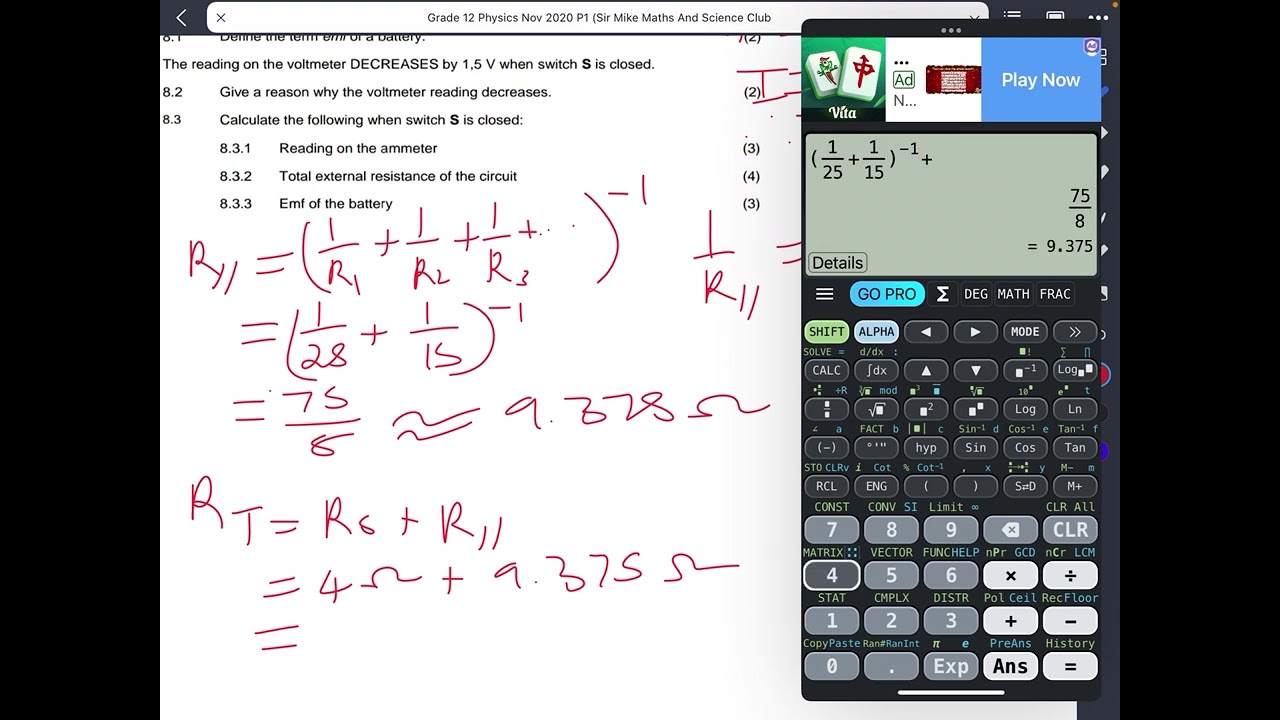 Grade 12 Physics Nov 2020 P1 (Sir Mike Maths And Science Club
8.1 Define the term emf of a battery. (2)
The reading on the voltmeter DECREASES by 1,5 V when switch S is closed.
8.2 Give a reason why the voltmeter reading decreases. (2)
8.3 Calculate the following when switch S is closed:
8.3.1 Reading on the ammeter (3)
8.3.2 Total external resistance of the circuit (4)
8.3.3 Emf of the battery (3)
I =
R// = (1/R1 + 1/R2 + 1/R3 + ...)^-1
1/R// =
= (1/25 + 1/15)^-1
= 75/8 ≈ 9.375 Ω
RT = Rs + R//
= 4 Ω + 9.375 Ω
=
Vita
Ad
N...
Play Now
(1/25 + 1/15)^-1 +
75/8
= 9.375
Details
GO PRO Σ DEG MATH FRAC
SHIFT ALPHA ◀ ▶ MODE >>
SOLVE = d/dx : ■! Σ ∏
CALC ∫dx ▲ ▼ ■^-1 Log■
÷R mod 10^■ e^■ t
√■ ■^2 Log Ln
∠ a FACT b |■| c Sin⁻¹ d Cos⁻¹ e Tan⁻¹ f
(−) °'" hyp Sin Cos Tan
STO CLRv i Cot % Cot⁻¹ , x y M− m
RCL ENG ( ) S⇄D M+
CONST CONV SI Limit ∞ CLR All
7 8 9 CLR
MATRIX VECTOR FUNC HELP nPr GCD nCr LCM
4 5 6 × ÷
STAT CMPLX DISTR Pol Ceil Rec Floor
1 2 3 + −
Copy Paste Ran# RanInt π e PreAns History
0 . Exp Ans =